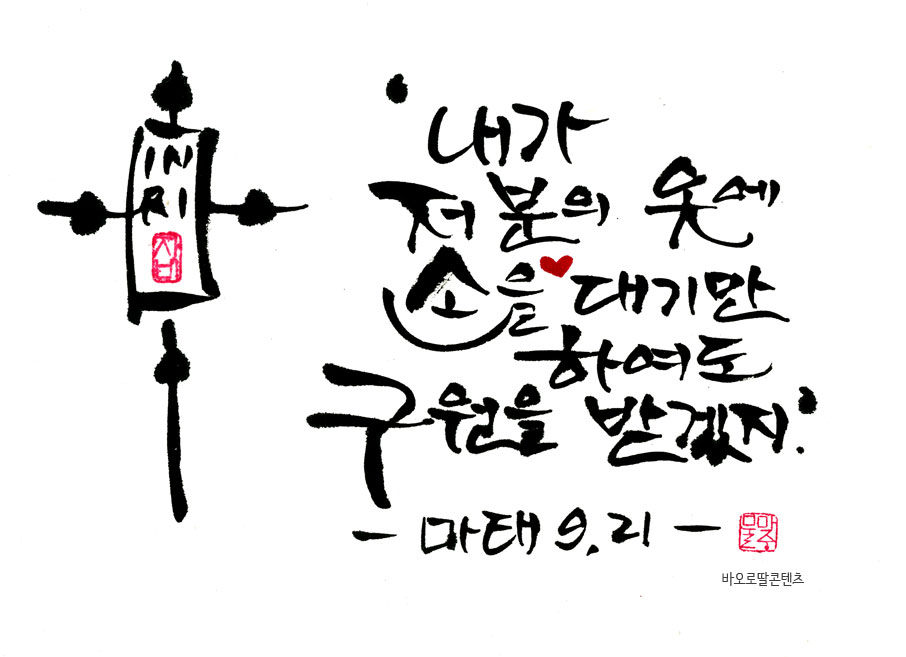 IN
RI
'내가
저분의 옷에
손을 대기만
하여도
구원을 받겠지.'
- 마태 9,21 -
바오로딸콘텐츠